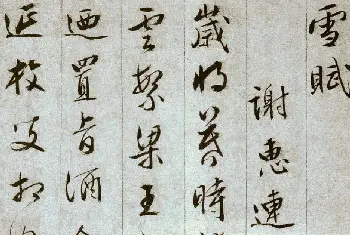 雪賦
謝惠連
歲將暮時
雲繁梁王
迺置旨酒
延枚叟相